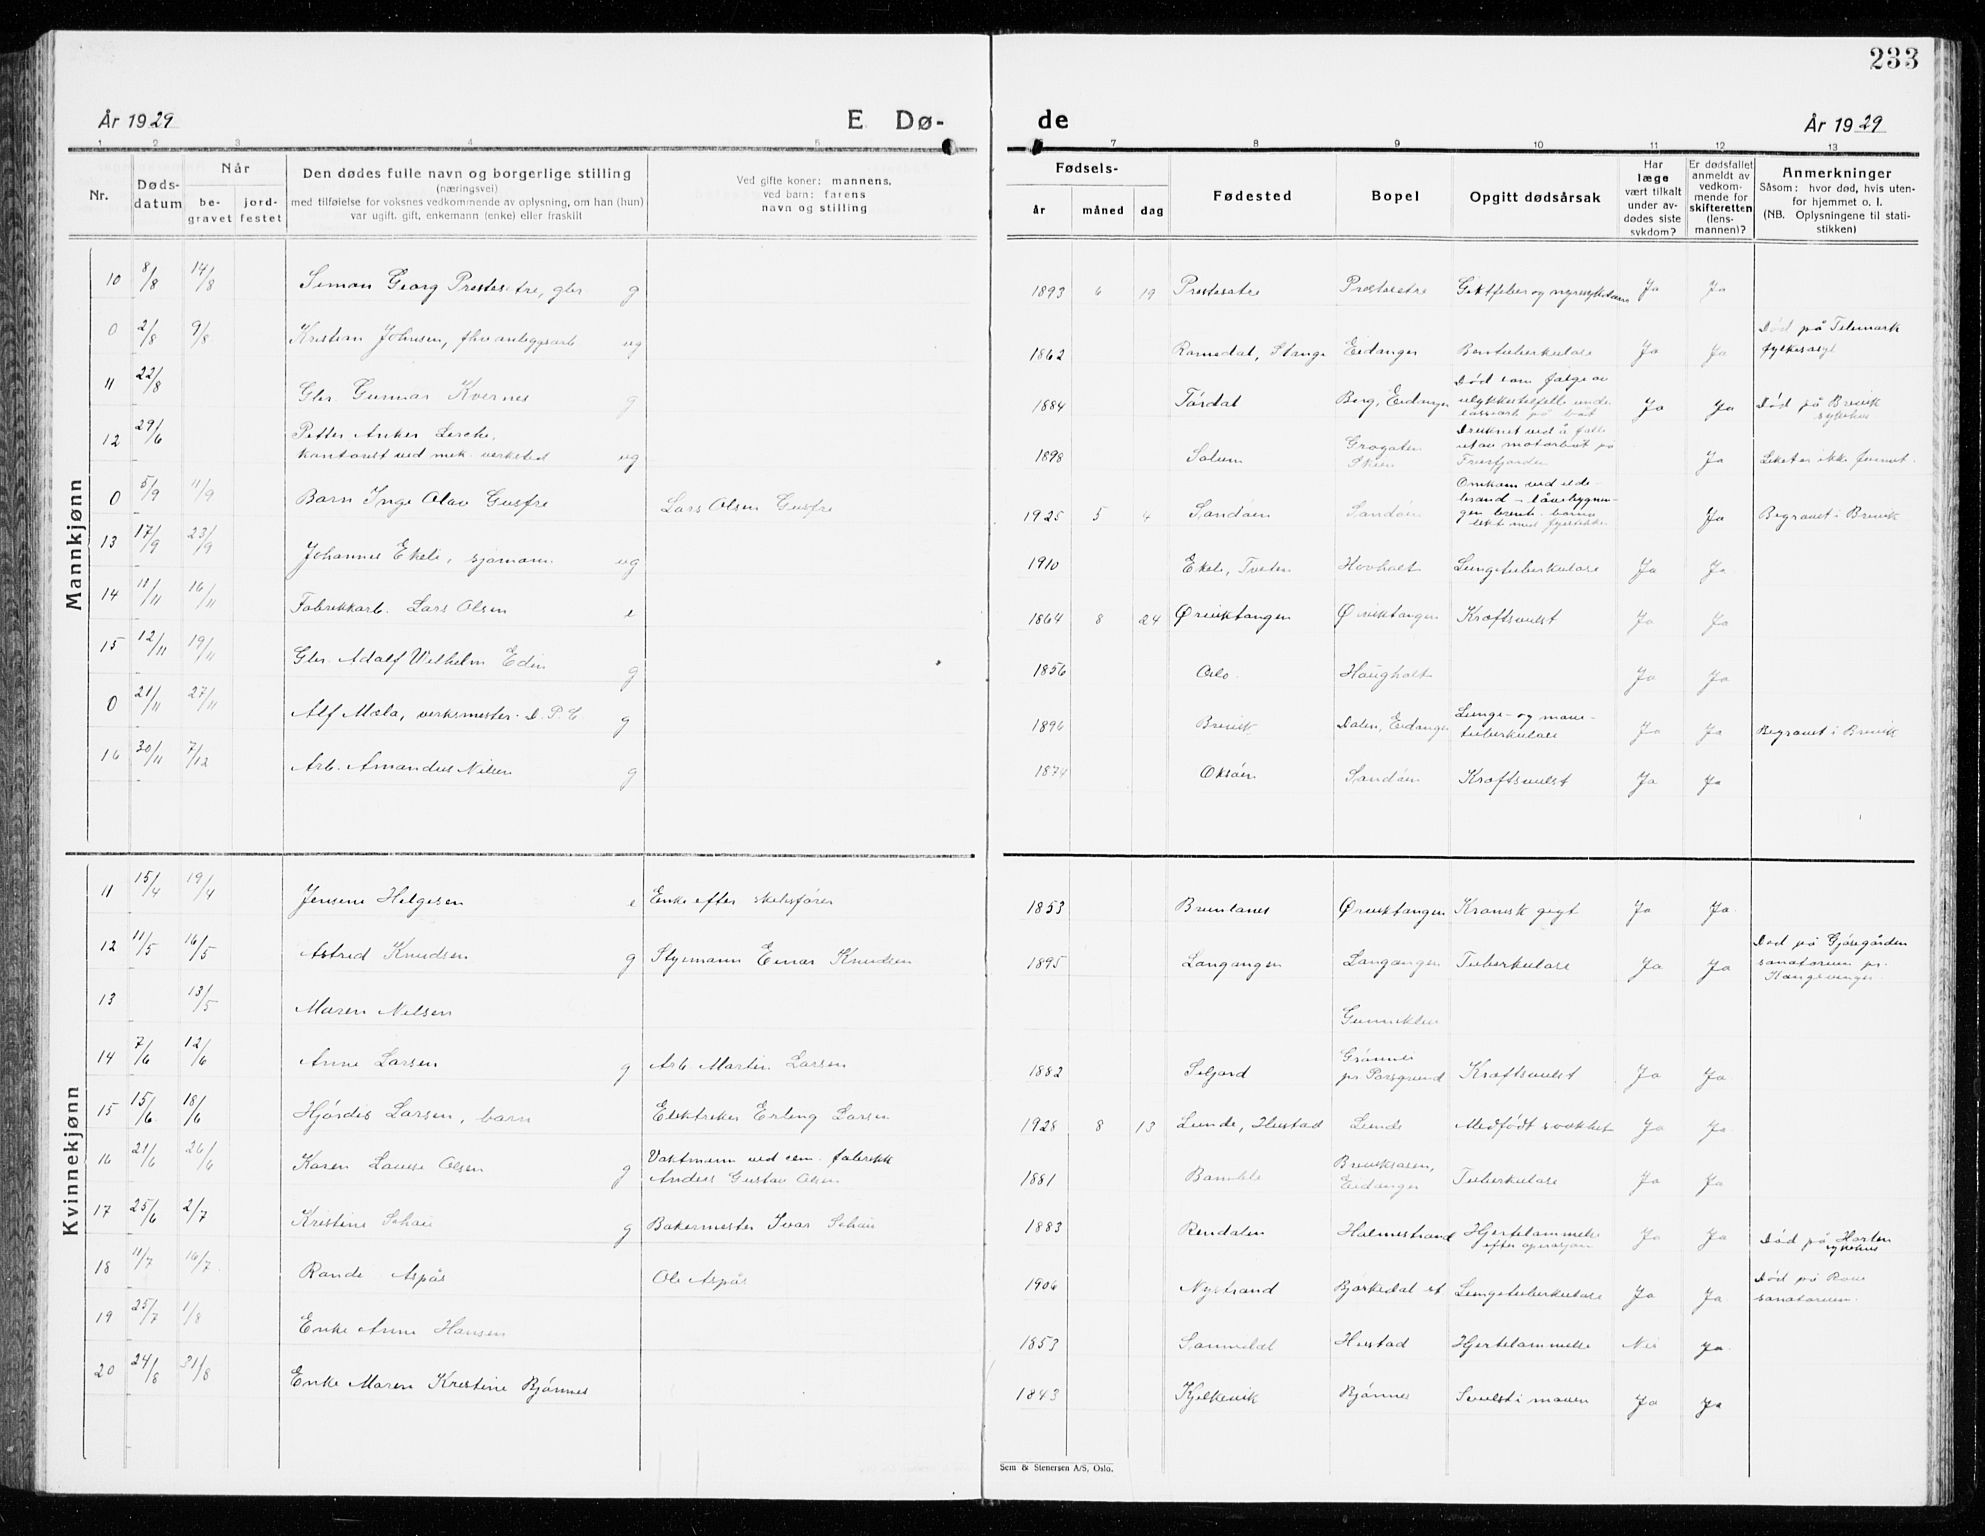 233
År 1929 E Dø- de År 1929
1 2 3 4 5 7 8 9 10 11 12 13
Nr. Døds-datum Når be-gravet jord-festet
Den dødes fulle navn og borgerlige stilling
(næringsvei)
med tilføielse for voksnes vedkommende av oplysning, om han (hun)
var ugift, gift, enkemann (enke) eller fraskilt
Ved gifte koner: mannens,
ved barn: farens
navn og stilling
Fødsels- år måned dag
Fødested
Bopel
Opgitt dødsårsak
Har
læge
vært tilkalt
under av-
dødes siste
sykdom?
Er dødsfallet
anmeldt av
vedkom-
mende for
skifteretten
(lens-
mannen)?
Anmerkninger
Såsom: hvor død, hvis uten-
for hjemmet o. l.
(NB. Oplysningene til stati-
stikken)
Mannkjønn
10 8/8 14/8 Simon Georg Prestesetre, gbr. g 1893 6 19 Prestesetre Prestesetre Giktfeber og nyresykdom Ja Ja
0 2/8 9/8 Kristian Johnsen, fhv. anleggsarb ug 1862 Romedal, Stange Eidanger Bentuberkulose Ja Ja Død på Telemark
fylkessyk
11 22/8 Gbr. Gunnar Kvernes g 1884 Tördal Borg, Eidanger Död som følge av
ulykkestilfelle under
lossearb. på båt Ja Ja Död på Brevik
sykehus
12 29/6 Petter Anker Lerche,
kontorist ved mek. verksted ug 1898 Solum Grogaten
Skien Druknet ved å falle
ut av motorbåt på
Friersfjorden Ja Liket er ikke funnet.
0 5/9 11/9 Barn Inge Olav Gusfre Lars Olsen Gusfre 1925 5 4 Sandöen Sandöen Omkom ved ilde-
brand - låvebygnin-
gen brente, barna
lekte med fyrstikker Ja Begravet i Brevik
13 17/9 23/9 Johannes Ekeli, sjömann ug 1910 Ekeli, Tveten Hovholt Lungetuberkulose Ja Ja
14 11/11 16/11 Fabrikkarb. Lars Olsen e 1864 8 24 Ørviktangen Ørviktangen Kræftsvulst Ja Ja
15 12/11 19/11 Gbr. Adolf Wilhelm Edin g 1856 Oslo Haugholt Ja Ja
0 21/11 27/11 Alf Mæla, verksmester D. P. C g 1896 Brevik Dalen, Eidanger Lunge- og mave-
tuberkulose Ja Ja Begravet i Brevik
16 30/11 7/12 Arb. Amandus Nilsen g 1874 Oksöen Sandöen Kræftsvulst Ja Ja
Kvinnekjønn
11 15/4 19/4 Jensine Helgesen e Enke efter skibsförer 1853 Ørviktangen Kronisk gigt Ja Ja
12 11/5 16/5 Astrid Knudsen g Styrmann Einar Knudsen 1895 Langangen Langangen Tuberkulose Ja Ja Död på Gjösegården
sanatorium pr.
Kongsvinger
13 13/5 Maren Nilsen Gunneklev
14 7/6 12/6 Anne Larsen g Arb. Martin Larsen 1882 Seljord Grönnes
pr. Porsgrund Kræftsvulst Ja Ja
15 15/6 18/6 Hjördis Larsen, barn Elektriker Erling Larsen 1928 8 13 Lunde, Heistad Lunde Medfödt svakhet Ja Ja
16 21/6 26/6 Karen Louise Olsen g Vaktmann ved cem. fabrikk
Anders Gustav Olsen 1881 Bamble Breviksåsen,
Eidanger Tuberkulose Ja Ja
17 25/6 2/7 Kristine Schau g Bakermester Ivar Schau 1883 Rendalen Holmestrand Hjertelammelse
efter operasjon Ja Ja Död på Horten
sykehus
18 11/7 16/7 Randi Aspås Ole Aspås 1906 Nystrand Björkedal st Lungetuberkulose Ja Ja Död på
sanatorium
19 25/7 1/8 Enke Anne Hansen 1853 Sannidal Heistad Hjertelammelse Nei Ja
20 24/8 31/8 Enke Maren Kristine Bjönnes 1843 Kjelkevik Bjönnes Svulst i maven Ja Ja
Sem & Stenersen A/S, Oslo.